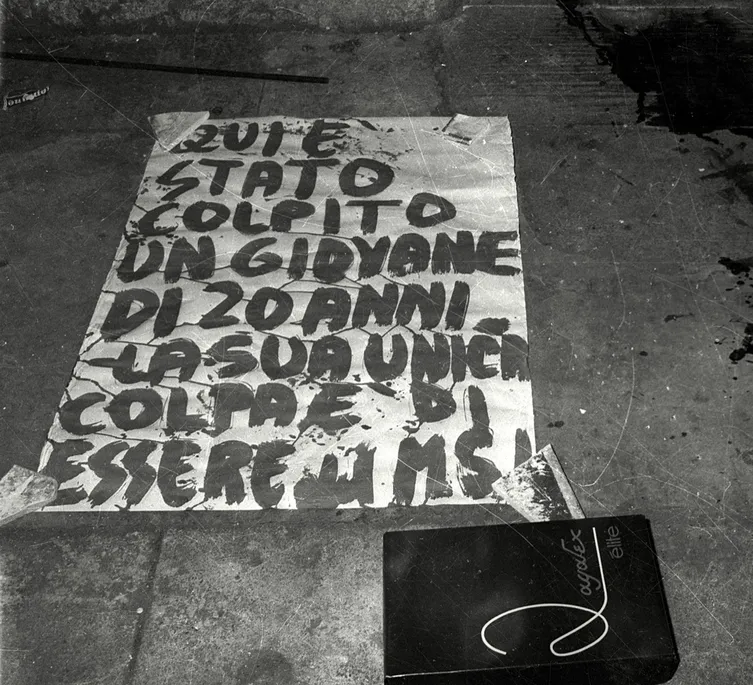 QUI È
STATO
COLPITO
UN GIOVANE
DI 20 ANNI
LA SUA UNICA
COLPA È DI
ESSERE MSI
élite